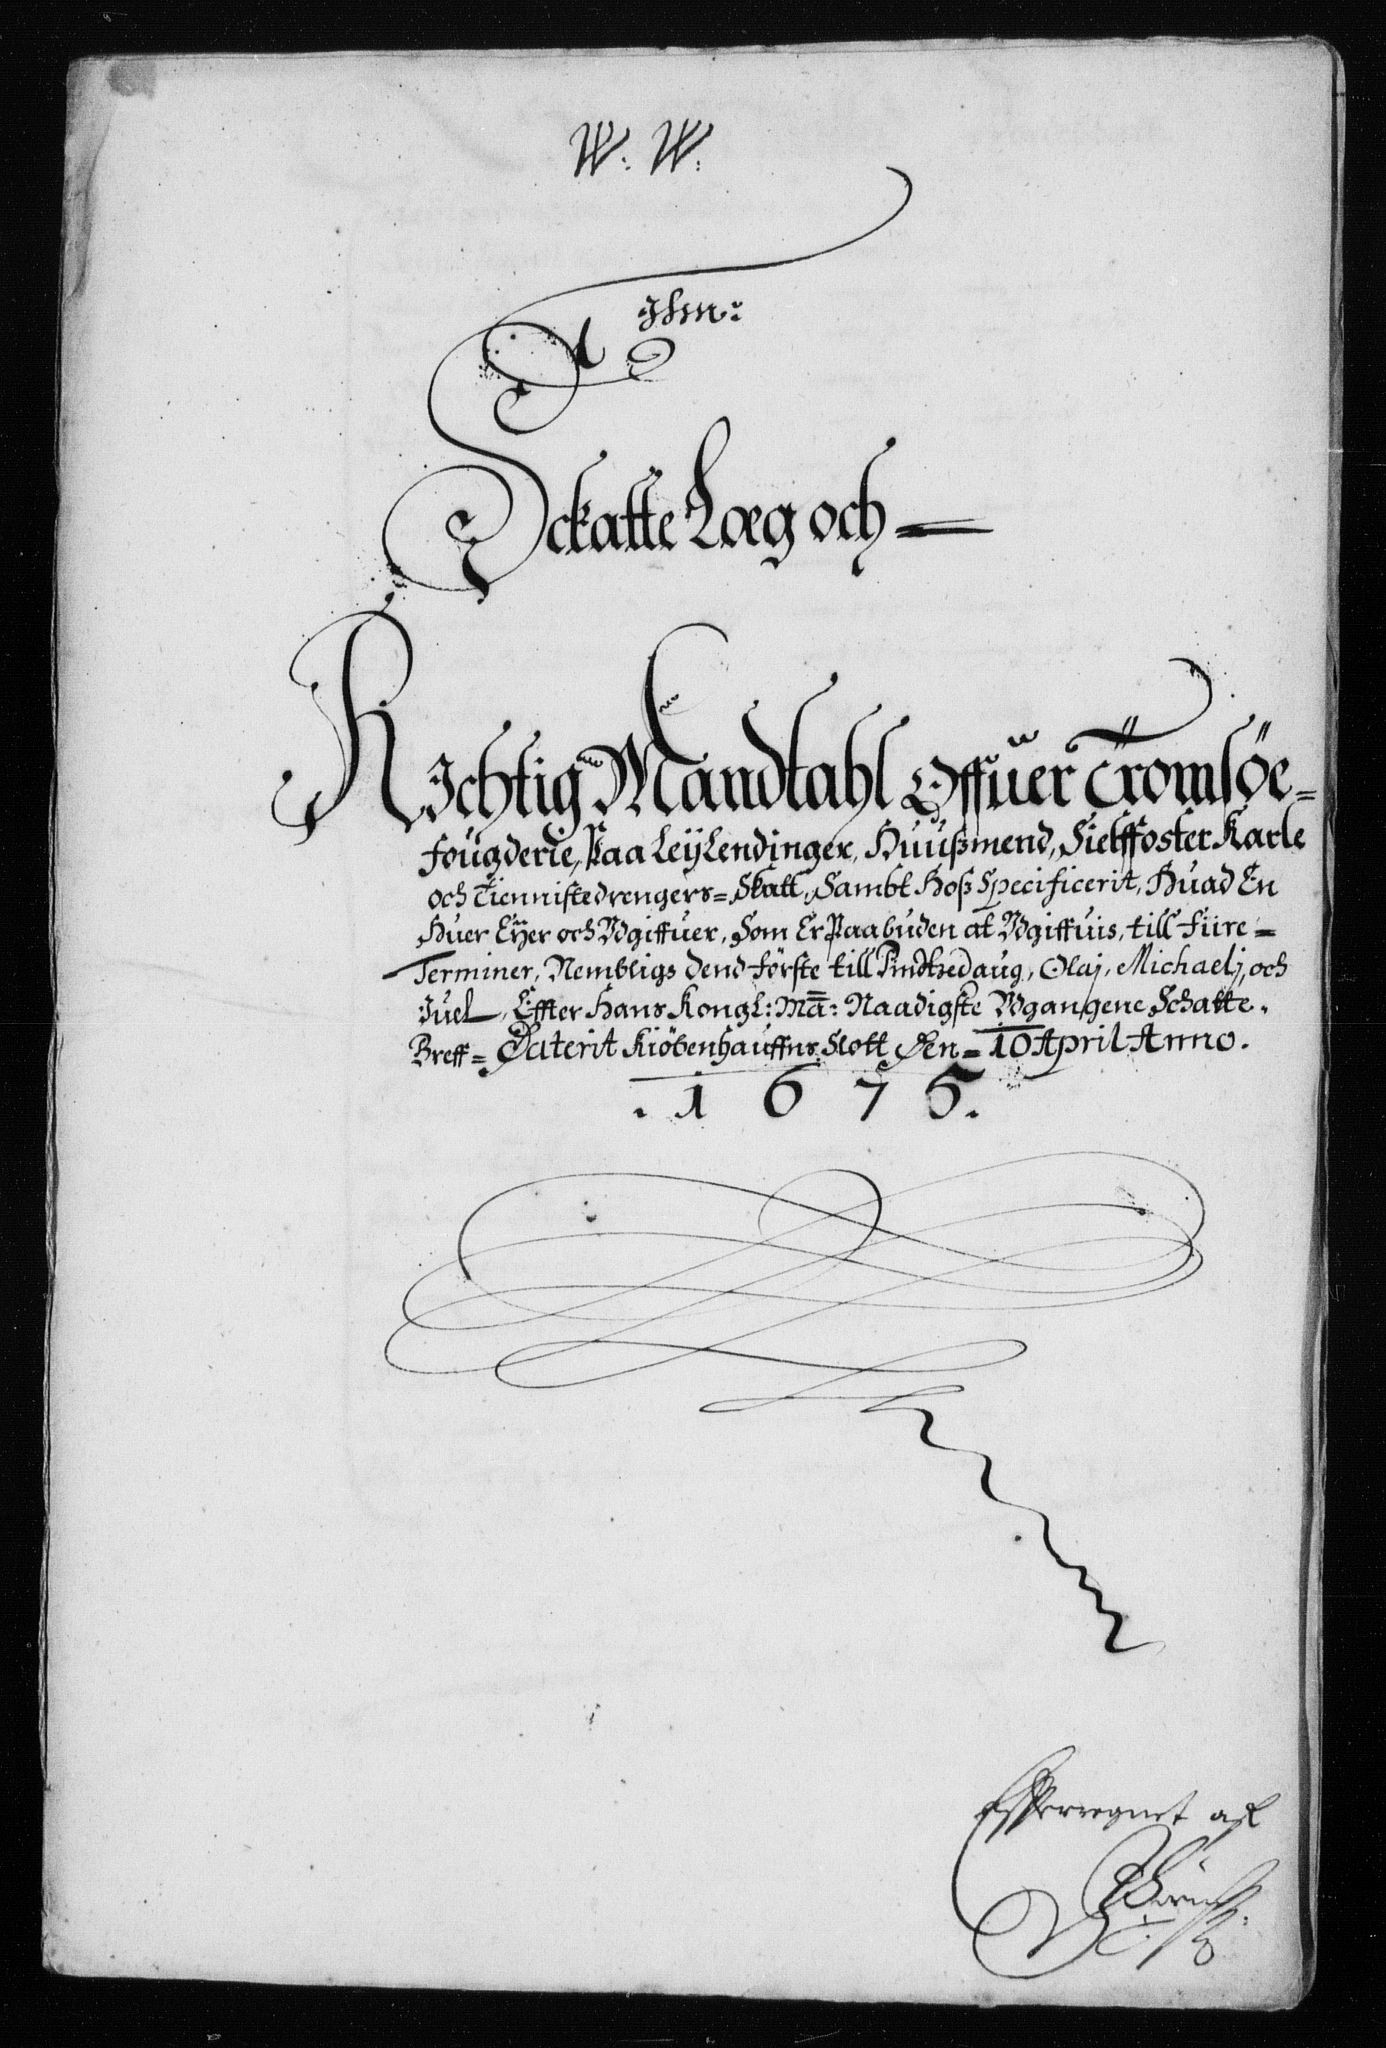 W. W.
Schatte Læg och
Richtig Mandtahl Offuer Tromsöe=
fougderie, Paa Leÿlendinger, Huußmend, Sielffoster Karle
och Tiennistedrengers= Skatt, Sambt Hoß Specificerit, Huad En
Huer Eÿer och Wgiffuer, Som Er Paabuden at Wgiffuis, till fiire=
Terminer, Nembligs dend förste till Pindtzedaug, Olaj, Michaelj, och
Juel, Effter Hans Kongl: Ma: Naadigste Wgangene Schatte.
Breff= Daterit Kiöbenhauffns Slott Den= 10 April Anno.
. 1 6 7 5.
Efterregnet af